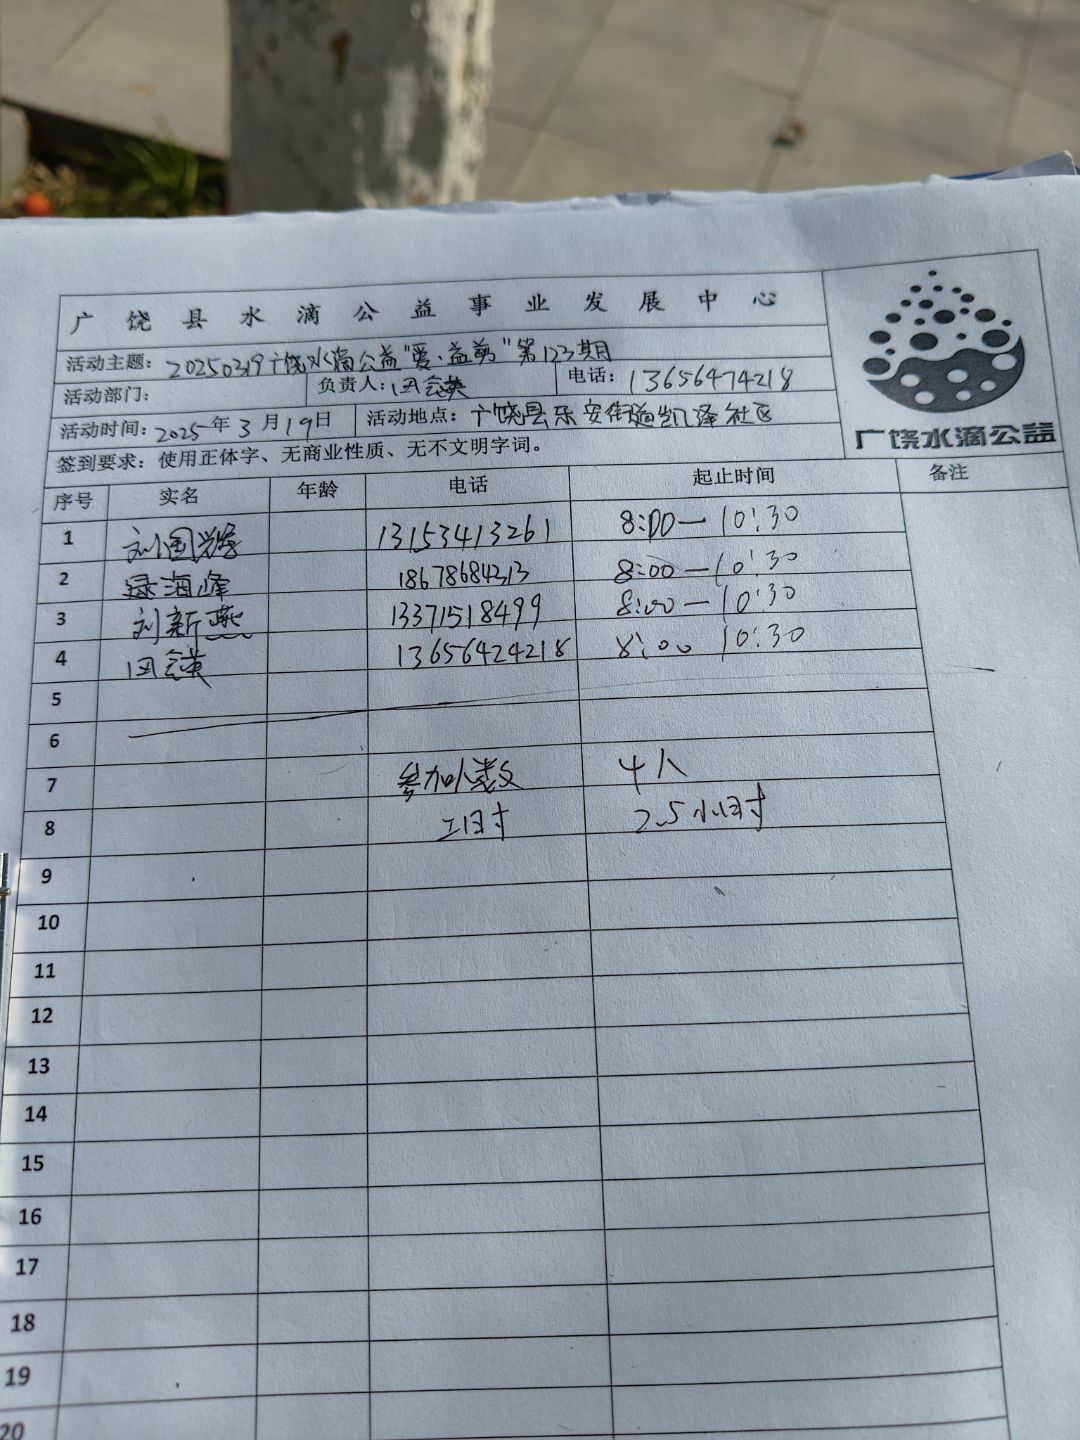 广饶县水滴公益事业发展中心
活动主题：20250319广饶水滴公益"爱·益剪"第123期
活动部门： 负责人：田会英 电话：13656474218
活动时间：2025年3月19日 活动地点：广饶县乐安街道凯泽社区
签到要求：使用正体字、无商业性质、无不文明字词。
广饶水滴公益
序号 实名 年龄 电话 起止时间 备注
1 刘国辉 13153413261 8:00—10:30
2 海峰 18678684313 8:00—10:30
3 刘新燕 13371518499 8:00—10:30
4 田会英 13656424218 8:00 10:30
5
6
7 参加人数 4人
8 工时 2.5小时
9
10
11
12
13
14
15
16
17
18
19
20